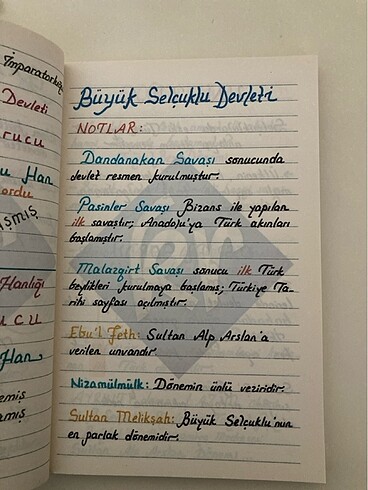 İmparatorluğu
Devleti
rucu
u Han
ordu
aşmış
Hanlığı
ucu
Han
emiş
amış
Büyük Selçuklu Devleti
NOTLAR:
Dandanakan Savaşı sonucunda
devlet resmen kurulmuştur.
Pasinler Savaşı Bizans ile yapılan
ilk savaştır; Anadolu'ya Türk akınları
başlamıştır.
Malazgirt Savaşı sonucu ilk Türk
beylikleri kurulmaya başlamış; Türkiye Ta-
rihi sayfası açılmıştır.
Ebu'l Feth: Sultan Alp Arslan'a
verilen unvandır.
Nizamülmülk: Dönemin ünlü veziridir.
Sultan Melikşah: Büyük Selçuklu'nun
en parlak dönemidir.